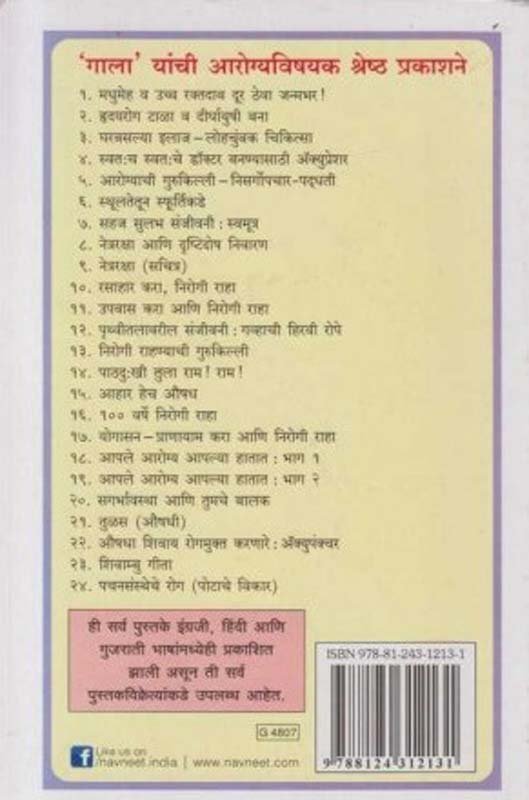 'गाला' यांची आरोग्यविषयक श्रेष्ठ प्रकाशने
१. मधुमेह व उच्च रक्तदाब दूर ठेवा जन्मभर!
२. हृदयरोग टाळा व दीर्घायुषी बना
३. घरबसल्या इलाज – लोहचुंबक चिकित्सा
४. स्वतःच स्वतःचे डॉक्टर बनण्यासाठी ॲक्युप्रेशर
५. आरोग्याची गुरुकिल्ली – निसर्गोपचार-पद्धती
६. स्थूलतेतून स्फूर्तिकडे
७. सहज सुलभ संजीवनी : स्वमूत्र
८. नेत्ररक्षा आणि दृष्टिदोष निवारण
९. नेत्ररक्षा (सचित्र)
१०. रसाहार करा, निरोगी राहा
११. उपवास करा आणि निरोगी राहा
१२. पृथ्वीतलावरील संजीवनी : गव्हाची हिरवी रोपे
१३. निरोगी राहण्याची गुरुकिल्ली
१४. पाठदुःखी तुला राम! राम!
१५. आहार हेच औषध
१६. १०० वर्षे निरोगी राहा
१७. योगासन – प्राणायाम करा आणि निरोगी राहा
१८. आपले आरोग्य आपल्या हातात : भाग १
१९. आपले आरोग्य आपल्या हातात : भाग २
२०. सगर्भावस्था आणि तुमचे बालक
२१. तुळस (औषधी)
२२. औषधा शिवाय रोगमुक्त करणारे : ॲक्युपंक्चर
२३. शिवाम्बु गीता
२४. पचनसंस्थेचे रोग (पोटाचे विकार)
ही सर्व पुस्तके इंग्रजी, हिंदी आणि
गुजराती भाषांमध्येही प्रकाशित
झाली असून ती सर्व
पुस्तकविक्रेत्यांकडे उपलब्ध आहेत.
ISBN 978-81-243-1213-1
9 788124 312131
G 4807
f Like us on
/navneet.india | www.navneet.com